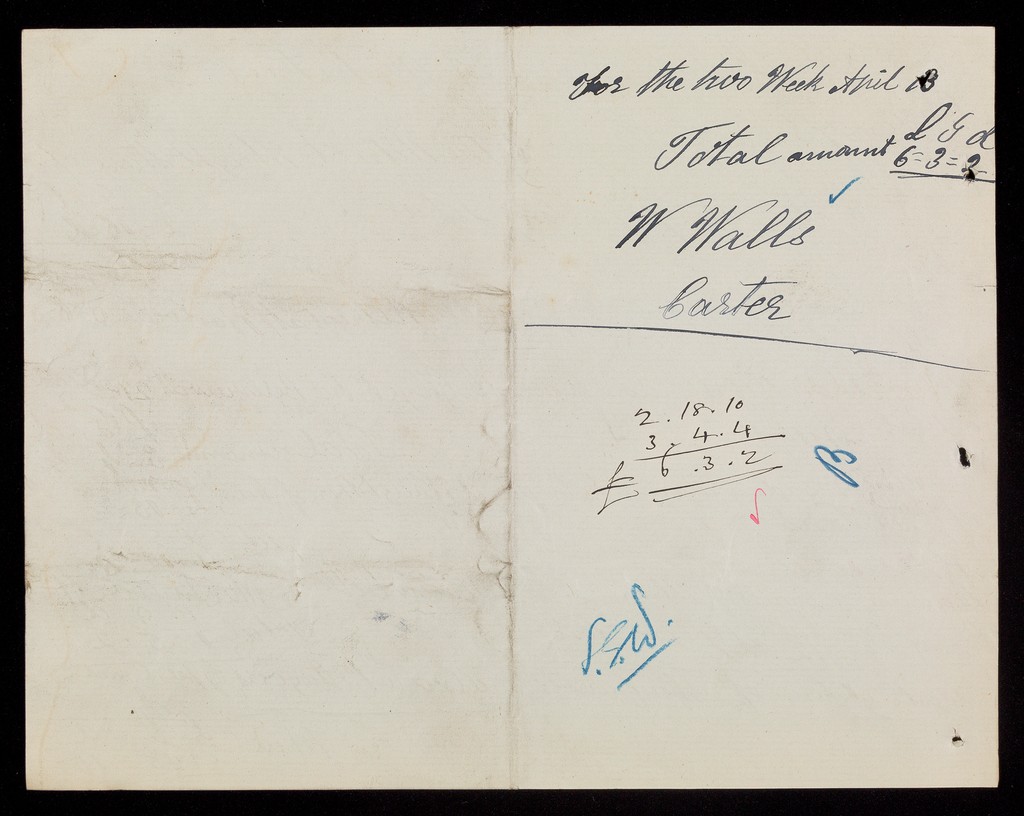 For the two Week April 13
Total amount £ S d
6=3=2
W Walls
Carter
2.18.10
3.4.4
£ 6.3.2
B